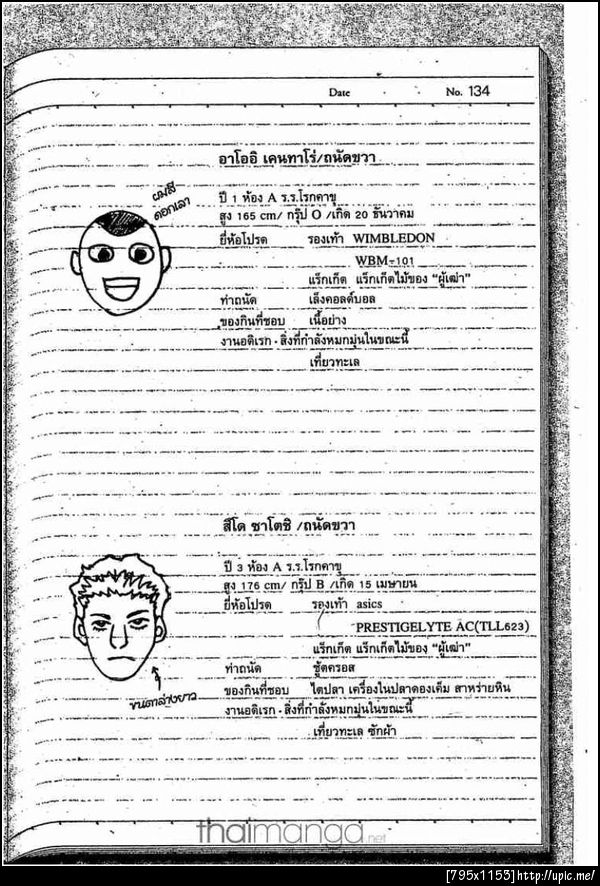 Date No. 134
อาโออิ เคนทาโร่/ถนัดขวา
ผมสี
ดอกเลา
ปี 1 ห้อง A ร.ร.โรกคาขุ
สูง 165 cm/ กรุ๊ป O /เกิด 20 ธันวาคม
ยี่ห้อโปรด รองเท้า WIMBLEDON
WBM-101
แร็กเก็ต แร็กเก็ตไม้ของ "ผู้เฒ่า"
ท่าถนัด เล็งคอลด์บอล
ของกินที่ชอบ เนื้อย่าง
งานอดิเรก · สิ่งที่กำลังหมกมุ่นในขณะนี้
เที่ยวทะเล
สึโด ซาโตชิ /ถนัดขวา
ปี 3 ห้อง A ร.ร.โรกคาขุ
สูง 176 cm/ กรุ๊ป B /เกิด 15 เมษายน
ยี่ห้อโปรด รองเท้า asics
PRESTIGELYTE AC(TLL623)
แร็กเก็ต แร็กเก็ตไม้ของ "ผู้เฒ่า"
ท่าถนัด ชู้ตครอส
ของกินที่ชอบ ไตปลา เครื่องในปลาดองเค็ม สาหร่ายหิน
ขนตาล่างยาว
งานอดิเรก · สิ่งที่กำลังหมกมุ่นในขณะนี้
เที่ยวทะเล ซักผ้า
thaimanga.net
[795x1153]http://upic.me/